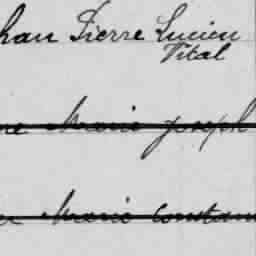 han Pierre Lucien
Vital
ne Marie Joseph
e Marie Constan